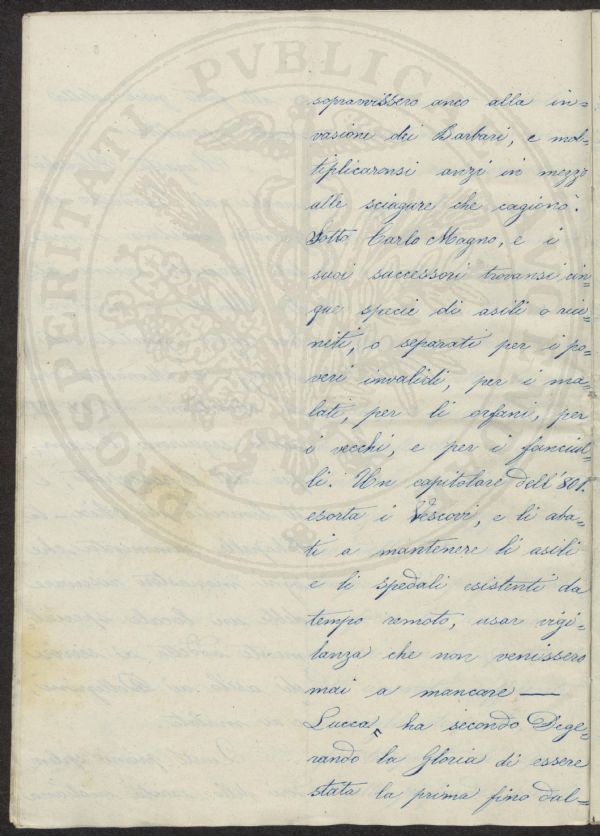 PROSPERITATI PVBLICAE
sopravvissero anco alla in=
vasione dei Barbari, e mol=
tiplicaronsi anzi in mezzo
alle sciagure che cagionò.
Sotto Carlo Magno, e i
suoi successori trovansi cin=
que specie di asili o riu=
niti, o separati per i po=
veri invalidi, per i ma=
lati, per li orfani, per
i vecchi, e per i fanciul=
li. Un capitolare dell'801.
esorta i Vescovi, e li aba=
ti a mantenere li asili
e li spedali esistenti da
tempo remoto, usar vigi=
lanza che non venissero
mai a mancare —
Lucca, ha secondo Dege=
rando la Gloria di essere
stata la prima fino dal=